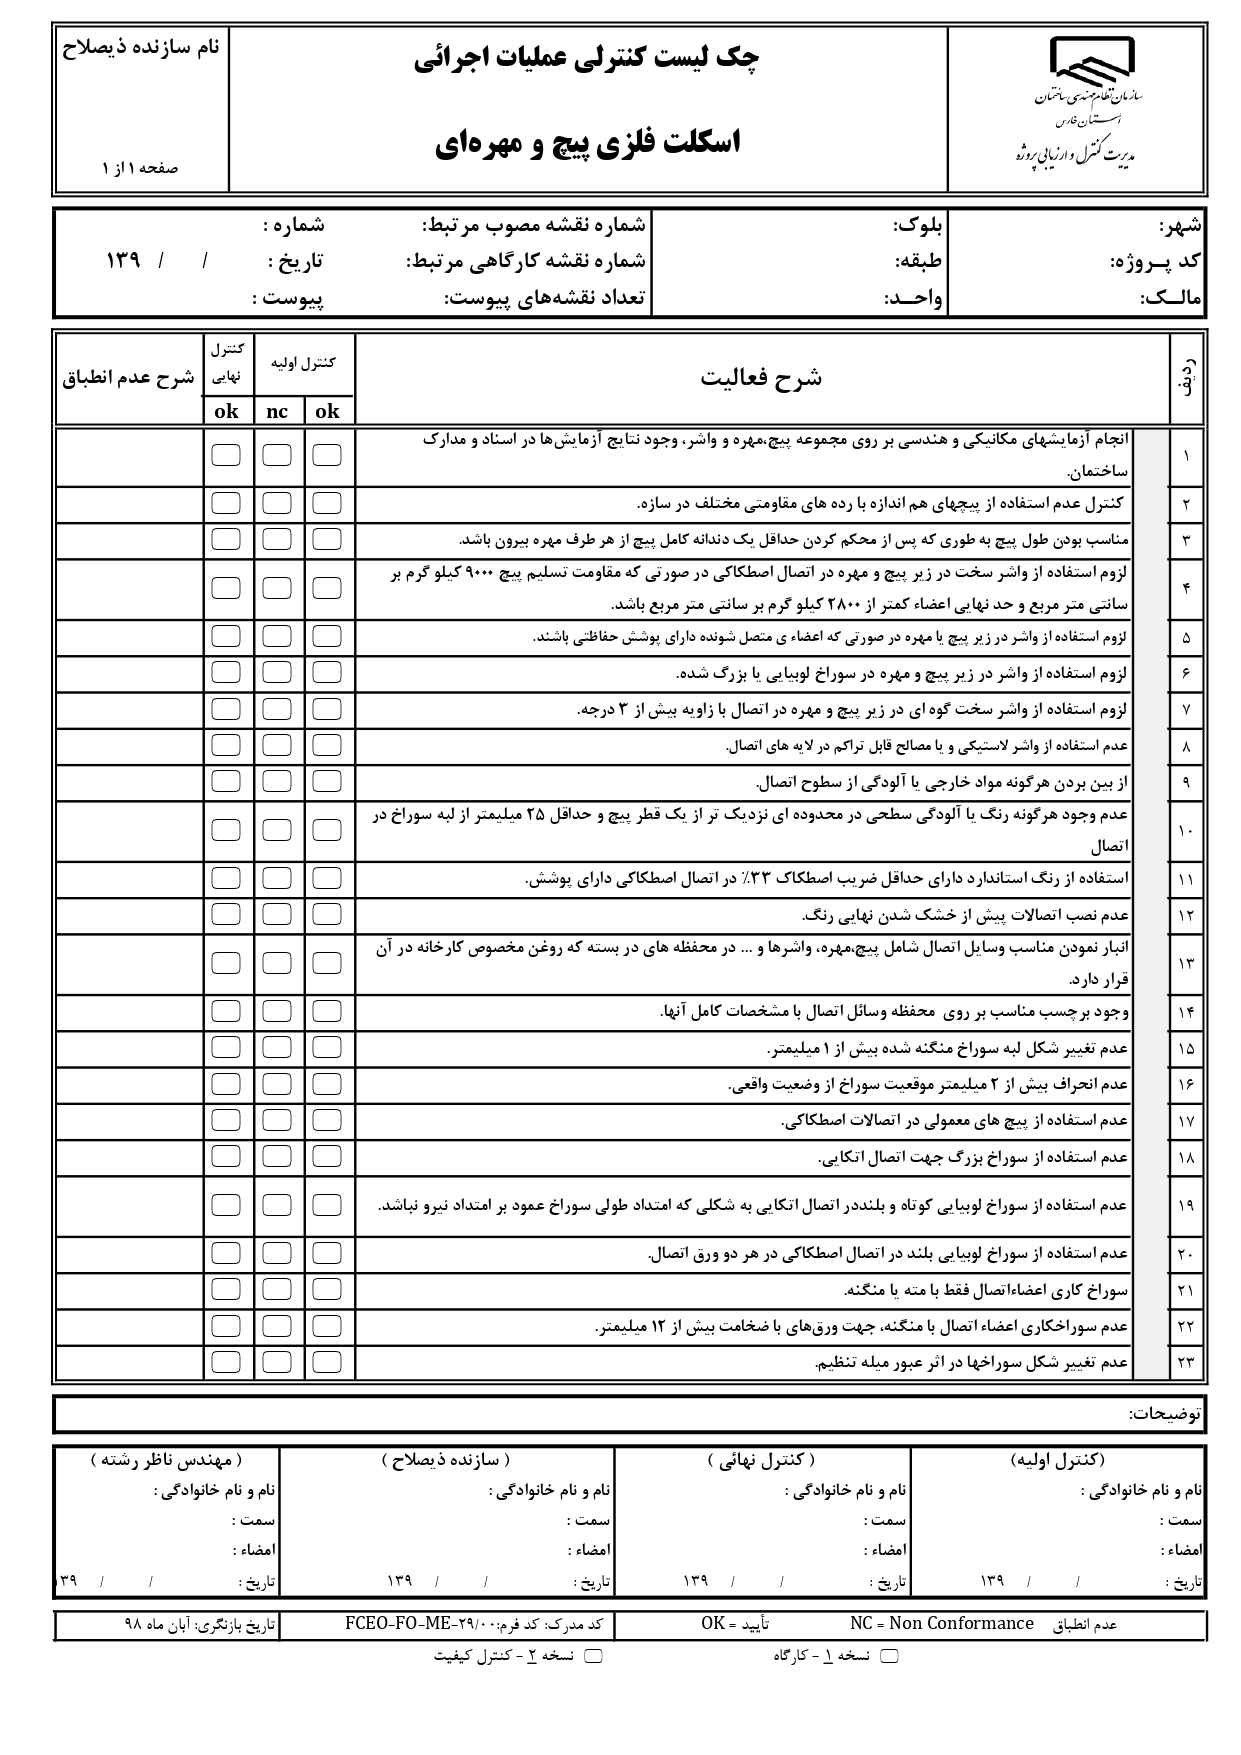 سازمان نظام مهندسی ساختمان
استان فارس
مدیریت کنترل و ارزیابی پروژه
چک لیست کنترلی عملیات اجرائی
اسکلت فلزی پیچ و مهره‌ای
نام سازنده ذیصلاح
صفحه ۱ از ۱
شهر: بلوک: شماره نقشه مصوب مرتبط: شماره :
کد پــروژه: طبقه: شماره نقشه کارگاهی مرتبط: تاریخ : / / ۱۳۹
مالــک: واحــد: تعداد نقشه‌های پیوست: پیوست :
ردیف شرح فعالیت کنترل اولیه کنترل نهایی شرح عدم انطباق
ok nc ok
۱ انجام آزمایشهای مکانیکی و هندسی بر روی مجموعه پیچ،مهره و واشر، وجود نتایج آزمایش‌ها در اسناد و مدارک
ساختمان.
۲ کنترل عدم استفاده از پیچهای هم اندازه با رده های مقاومتی مختلف در سازه.
۳ مناسب بودن طول پیچ به طوری که پس از محکم کردن حداقل یک دندانه کامل پیچ از هر طرف مهره بیرون باشد.
۴ لزوم استفاده از واشر سخت در زیر پیچ و مهره در اتصال اصطکاکی در صورتی که مقاومت تسلیم پیچ ۹۰۰۰ کیلو گرم بر
سانتی متر مربع و حد نهایی اعضاء کمتر از ۲۸۰۰ کیلو گرم بر سانتی متر مربع باشد.
۵ لزوم استفاده از واشر در زیر پیچ یا مهره در صورتی که اعضاء ی متصل شونده دارای پوشش حفاظتی باشند.
۶ لزوم استفاده از واشر در زیر پیچ و مهره در سوراخ لوبیایی یا بزرگ شده.
۷ لزوم استفاده از واشر سخت گوه ای در زیر پیچ و مهره در اتصال با زاویه بیش از ۳ درجه.
۸ عدم استفاده از واشر لاستیکی و یا مصالح قابل تراکم در لایه های اتصال.
۹ از بین بردن هرگونه مواد خارجی یا آلودگی از سطوح اتصال.
۱۰ عدم وجود هرگونه رنگ یا آلودگی سطحی در محدوده ای نزدیک تر از یک قطر پیچ و حداقل ۲۵ میلیمتر از لبه سوراخ در
اتصال
۱۱ استفاده از رنگ استاندارد دارای حداقل ضریب اصطکاک ۳۳٪ در اتصال اصطکاکی دارای پوشش.
۱۲ عدم نصب اتصالات پیش از خشک شدن نهایی رنگ.
۱۳ انبار نمودن مناسب وسایل اتصال شامل پیچ،مهره، واشرها و ... در محفظه های در بسته که روغن مخصوص کارخانه در آن
قرار دارد.
۱۴ وجود برچسب مناسب بر روی محفظه وسائل اتصال با مشخصات کامل آنها.
۱۵ عدم تغییر شکل لبه سوراخ منگنه شده بیش از ۱ میلیمتر.
۱۶ عدم انحراف بیش از ۲ میلیمتر موقعیت سوراخ از وضعیت واقعی.
۱۷ عدم استفاده از پیچ های معمولی در اتصالات اصطکاکی.
۱۸ عدم استفاده از سوراخ بزرگ جهت اتصال اتکایی.
۱۹ عدم استفاده از سوراخ لوبیایی کوتاه و بلنددر اتصال اتکایی به شکلی که امتداد طولی سوراخ عمود بر امتداد نیرو نباشد.
۲۰ عدم استفاده از سوراخ لوبیایی بلند در اتصال اصطکاکی در هر دو ورق اتصال.
۲۱ سوراخ کاری اعضاءاتصال فقط با مته یا منگنه.
۲۲ عدم سوراخکاری اعضاء اتصال با منگنه، جهت ورق‌های با ضخامت بیش از ۱۲ میلیمتر.
۲۳ عدم تغییر شکل سوراخها در اثر عبور میله تنظیم.
توضیحات:
(کنترل اولیه) ( کنترل نهائی ) ( سازنده ذیصلاح ) ( مهندس ناظر رشته )
نام و نام خانوادگی : نام و نام خانوادگی : نام و نام خانوادگی : نام و نام خانوادگی :
سمت : سمت : سمت : سمت :
امضاء : امضاء : امضاء : امضاء :
تاریخ : / / ۱۳۹ تاریخ : / / ۱۳۹ تاریخ : / / ۱۳۹ تاریخ : / / ۱۳۹
عدم انطباق NC = Non Conformance تأیید = OK کد مدرک: کد فرم:FCEO-FO-ME-۲۹/۰۰ تاریخ بازنگری: آبان ماه ۹۸
نسخه ۱ - کارگاه نسخه ۲ - کنترل کیفیت